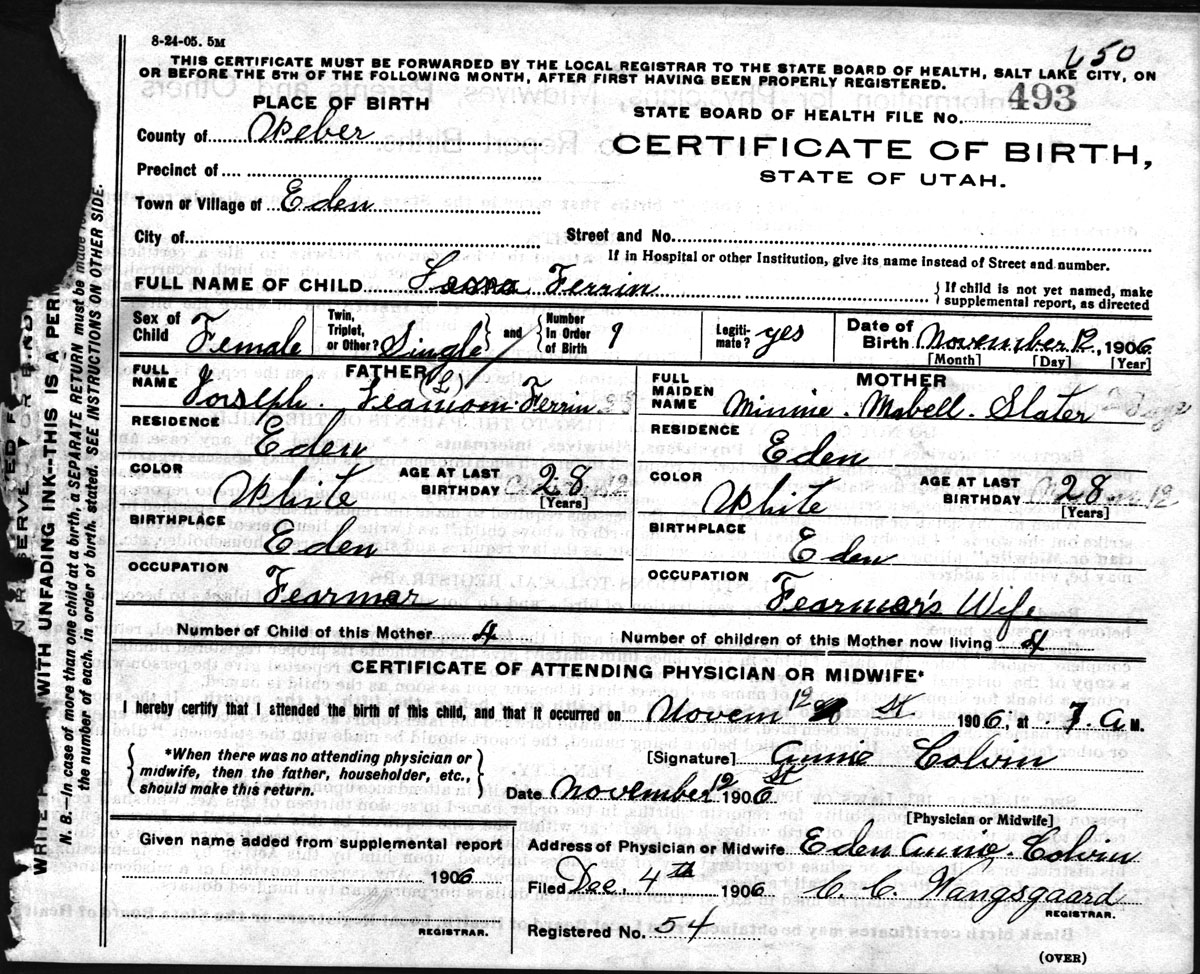 8-24-05. 5M
650
THIS CERTIFICATE MUST BE FORWARDED BY THE LOCAL REGISTRAR TO THE STATE BOARD OF HEALTH, SALT LAKE CITY, ON
OR BEFORE THE 5TH OF THE FOLLOWING MONTH, AFTER FIRST HAVING BEEN PROPERLY REGISTERED.
PLACE OF BIRTH
STATE BOARD OF HEALTH FILE No. 493
County of Weber
CERTIFICATE OF BIRTH,
STATE OF UTAH.
Precinct of
Town or Village of Eden
City of
Street and No.
If in Hospital or other Institution, give its name instead of Street and number.
FULL NAME OF CHILD Ferrin
If child is not yet named, make
supplemental report, as directed
Sex of Child Female
Twin, Triplet, or Other? Single
and
Number In Order of Birth 1
Legiti- mate? yes
Date of Birth November 12, 1906
[Month] [Day] [Year]
FATHER
FULL NAME Joseph (L) Ferrin
RESIDENCE Eden
COLOR White
AGE AT LAST BIRTHDAY 28
[Years]
BIRTHPLACE Eden
OCCUPATION Fearmar
MOTHER
FULL MAIDEN NAME Minnie. Mabell. Slater
RESIDENCE Eden
COLOR White
AGE AT LAST BIRTHDAY 28
[Years]
BIRTHPLACE Eden
OCCUPATION Fearmar's Wife
Number of Child of this Mother 4
Number of children of this Mother now living 4
CERTIFICATE OF ATTENDING PHYSICIAN OR MIDWIFE*
I hereby certify that I attended the birth of this child, and that it occurred on Novem 12 St 1906, at 7 A M.
*When there was no attending physician or
midwife, then the father, householder, etc.,
should make this return.
[Signature] Annie Colvin
Date November 12 St 1906
[Physician or Midwife]
Given name added from supplemental report
1906
REGISTRAR.
Address of Physician or Midwife Eden Annie. Colvin
Filed Dec. 4th 1906 C. C. Wangsgaard
REGISTRAR.
Registered No. 54
(OVER)
WITH UNFADING INK--THIS IS A
N. B.--In case of more than one child at a birth, a SEPARATE RETURN must be made
the number of each, in order of birth, stated. SEE INSTRUCTIONS ON OTHER SIDE.